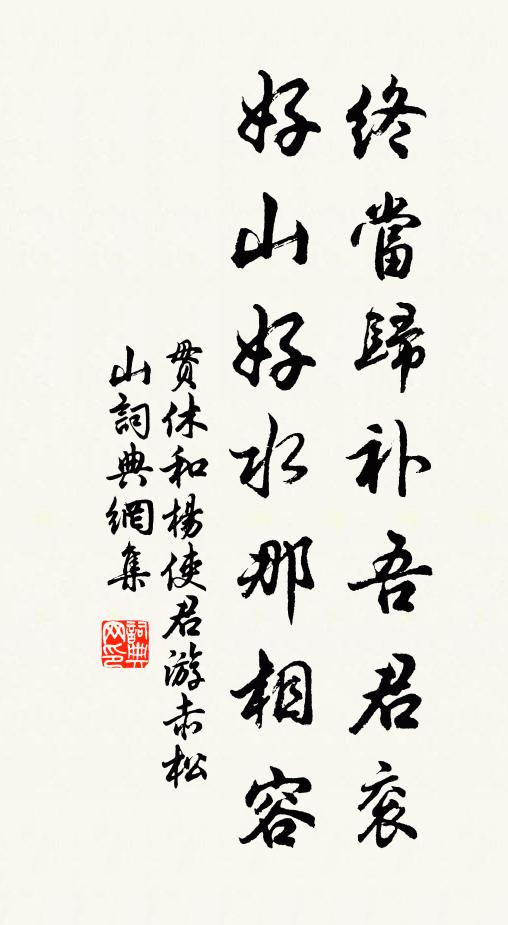 終當歸补吾君衮
好山好水那相容
贯休和楊使君游赤松
山詞典網集
詞典网印